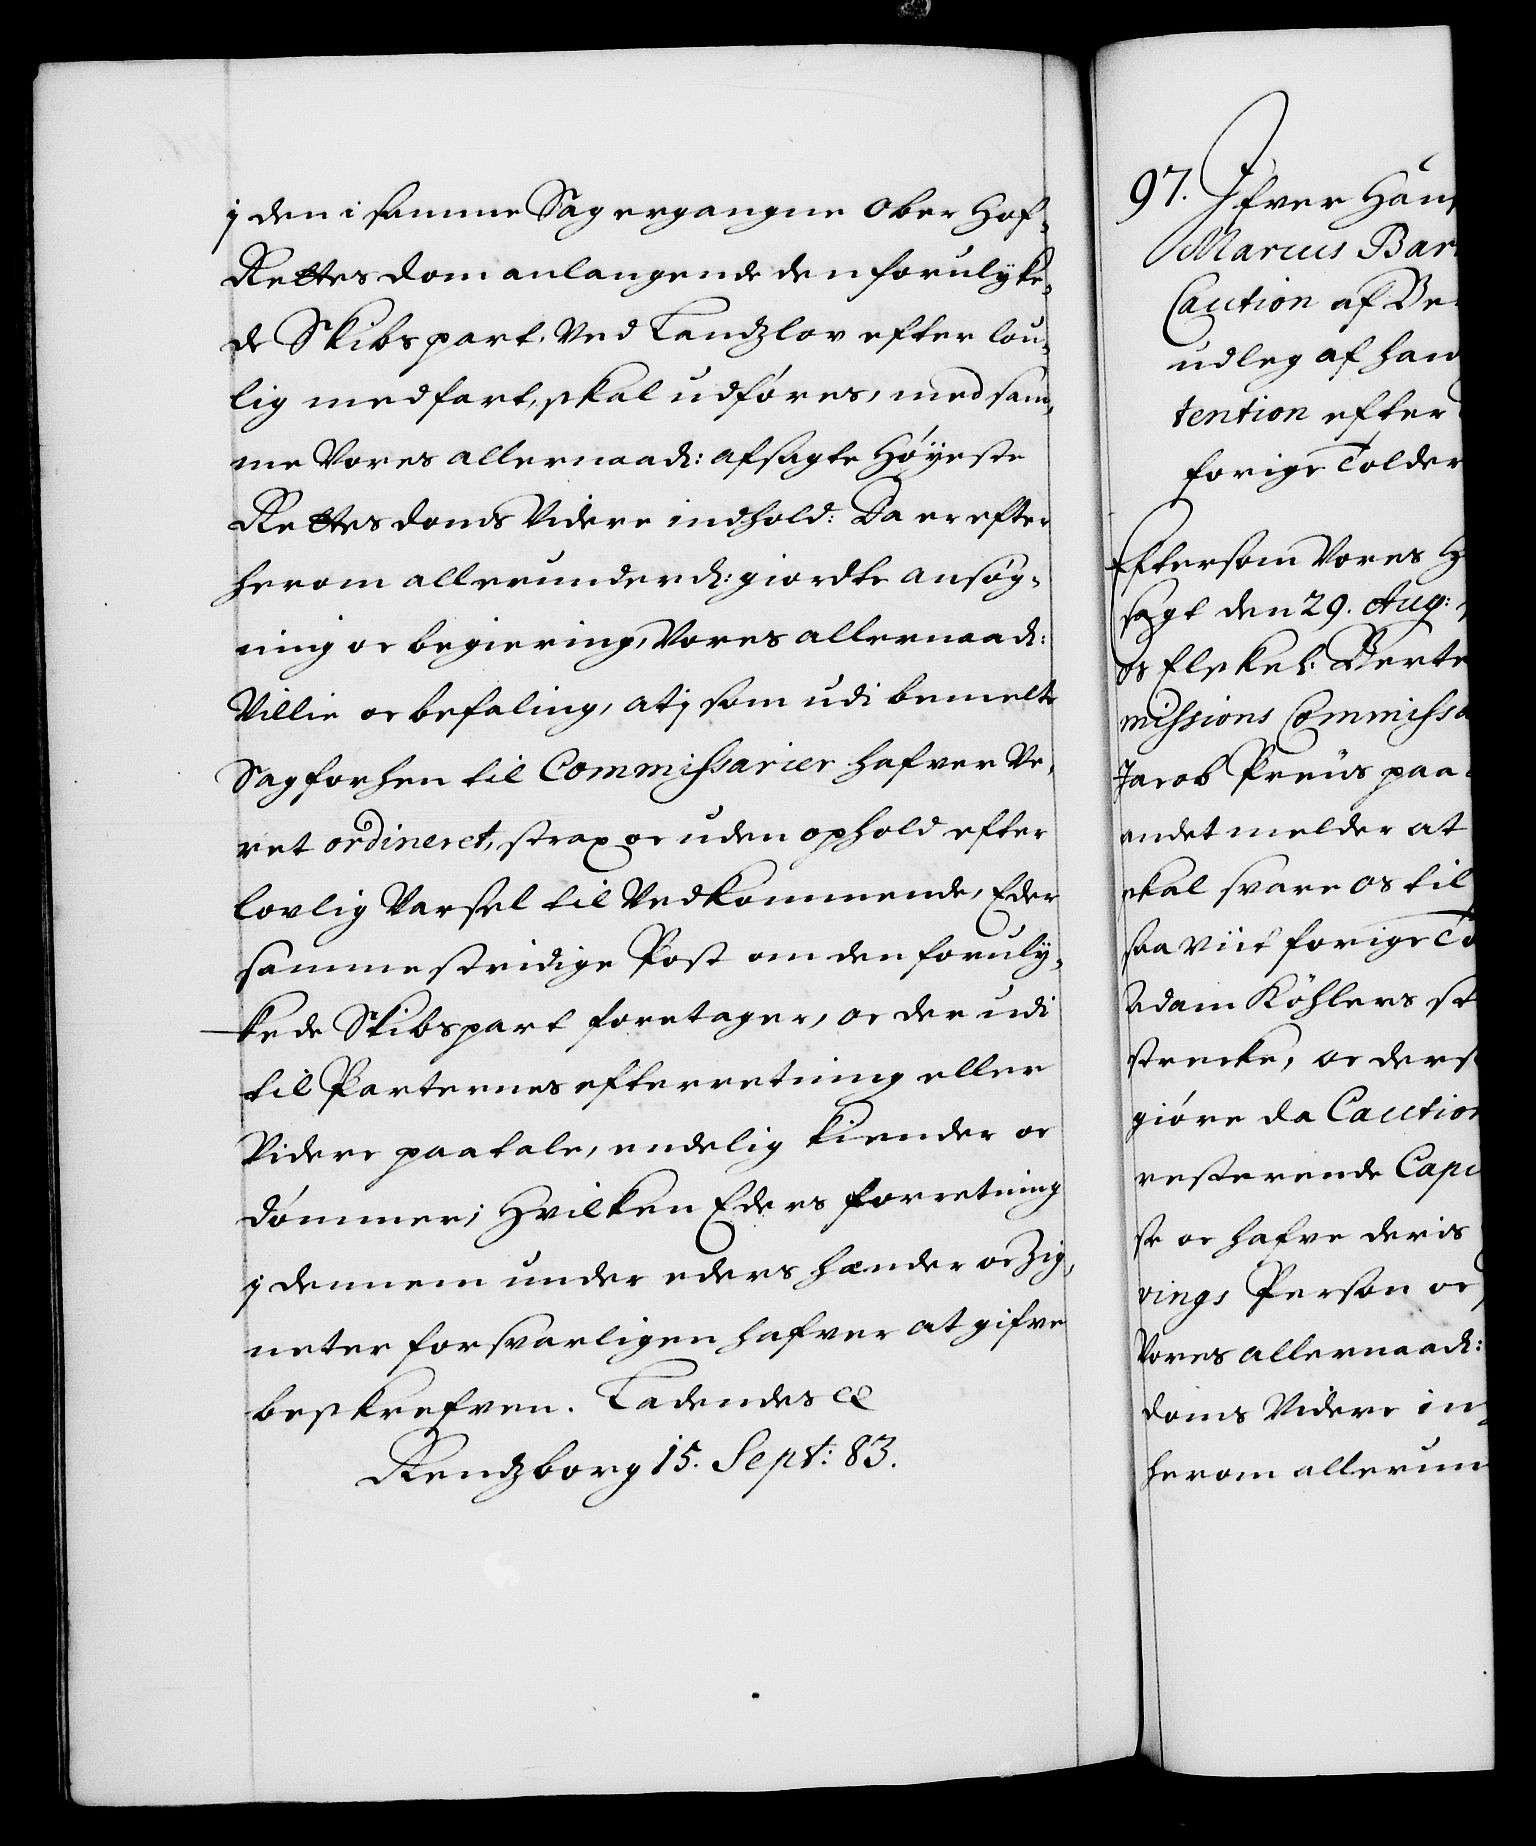 j den i samme Sag ergangne Ober Hof-
Rettes dom anlangende den forulyke-
de Skibs part, Ved Landzlov efter lou-
lig medfart, skal udføres, med sam-
me Vores allernaad: afsagte Høyeste
Rettes doms Videre indhold: Da er efter
herom allerunderd: giordte ansøg-
ning oc begiering, Vores allernaad:
Villie oc befaling, at j som udi bemelte
Sag forhen til Commissarier hafver Ve-
ret ordineret, strax oc uden ophold efter
lovlig Varsel til Vedkommende, Eder
samme stridige Post om den foruly-
kede Skibspart foretager, oc der udi
til Parternes efterretning eller
Videre paatale, endelig kiender oc
dømmer; Hvilken Eders forretning
j dennem under eders hænder oc Zig-
neter forsvarligen hafver at gifve
beskrefven. Ladendes
Rendzborg 15. Sept: 83.
97. Ifver Han
Marcus Bar
Caution af Be
udleg af han
tention efter
forige Tolder
Eftersom Vores H
sagt den 29. Aug:
os Elskel: Berte
missions Commissa
Jacob Preus paa
andet melder at
skal svare os til
saa viit forige To
Adam Köhlers st
strecke, oc ders
giøre da Caution
resterende Capi
se oc hafve deris
vings Person oc
Vores allernaad:
doms Videre in
herom allerun